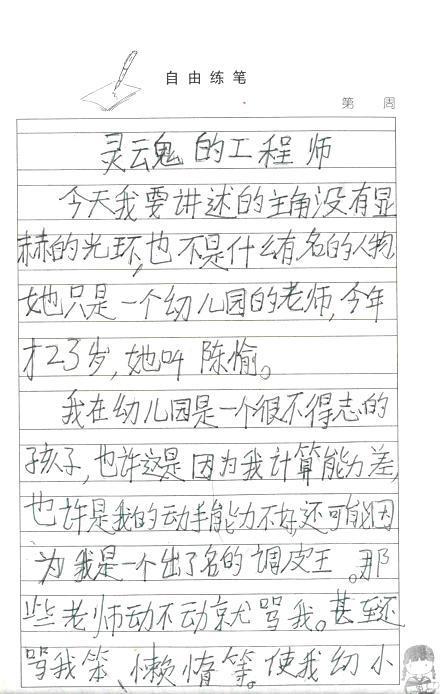 自由练笔
第 周
灵魂的工程师
今天我要讲述的主角没有显
赫的光环,也不是什么有名的人物
她只是一个幼儿园的老师,今年
才23岁,她叫陈愉。
我在幼儿园是一个很不得志的
孩子,也许这是因为我计算能力差,
也许是我的动手能力不好,还可能因
为我是一个出了名的调皮王。那
些老师动不动就骂我。甚至还
骂我笨、懒惰等。使我幼小